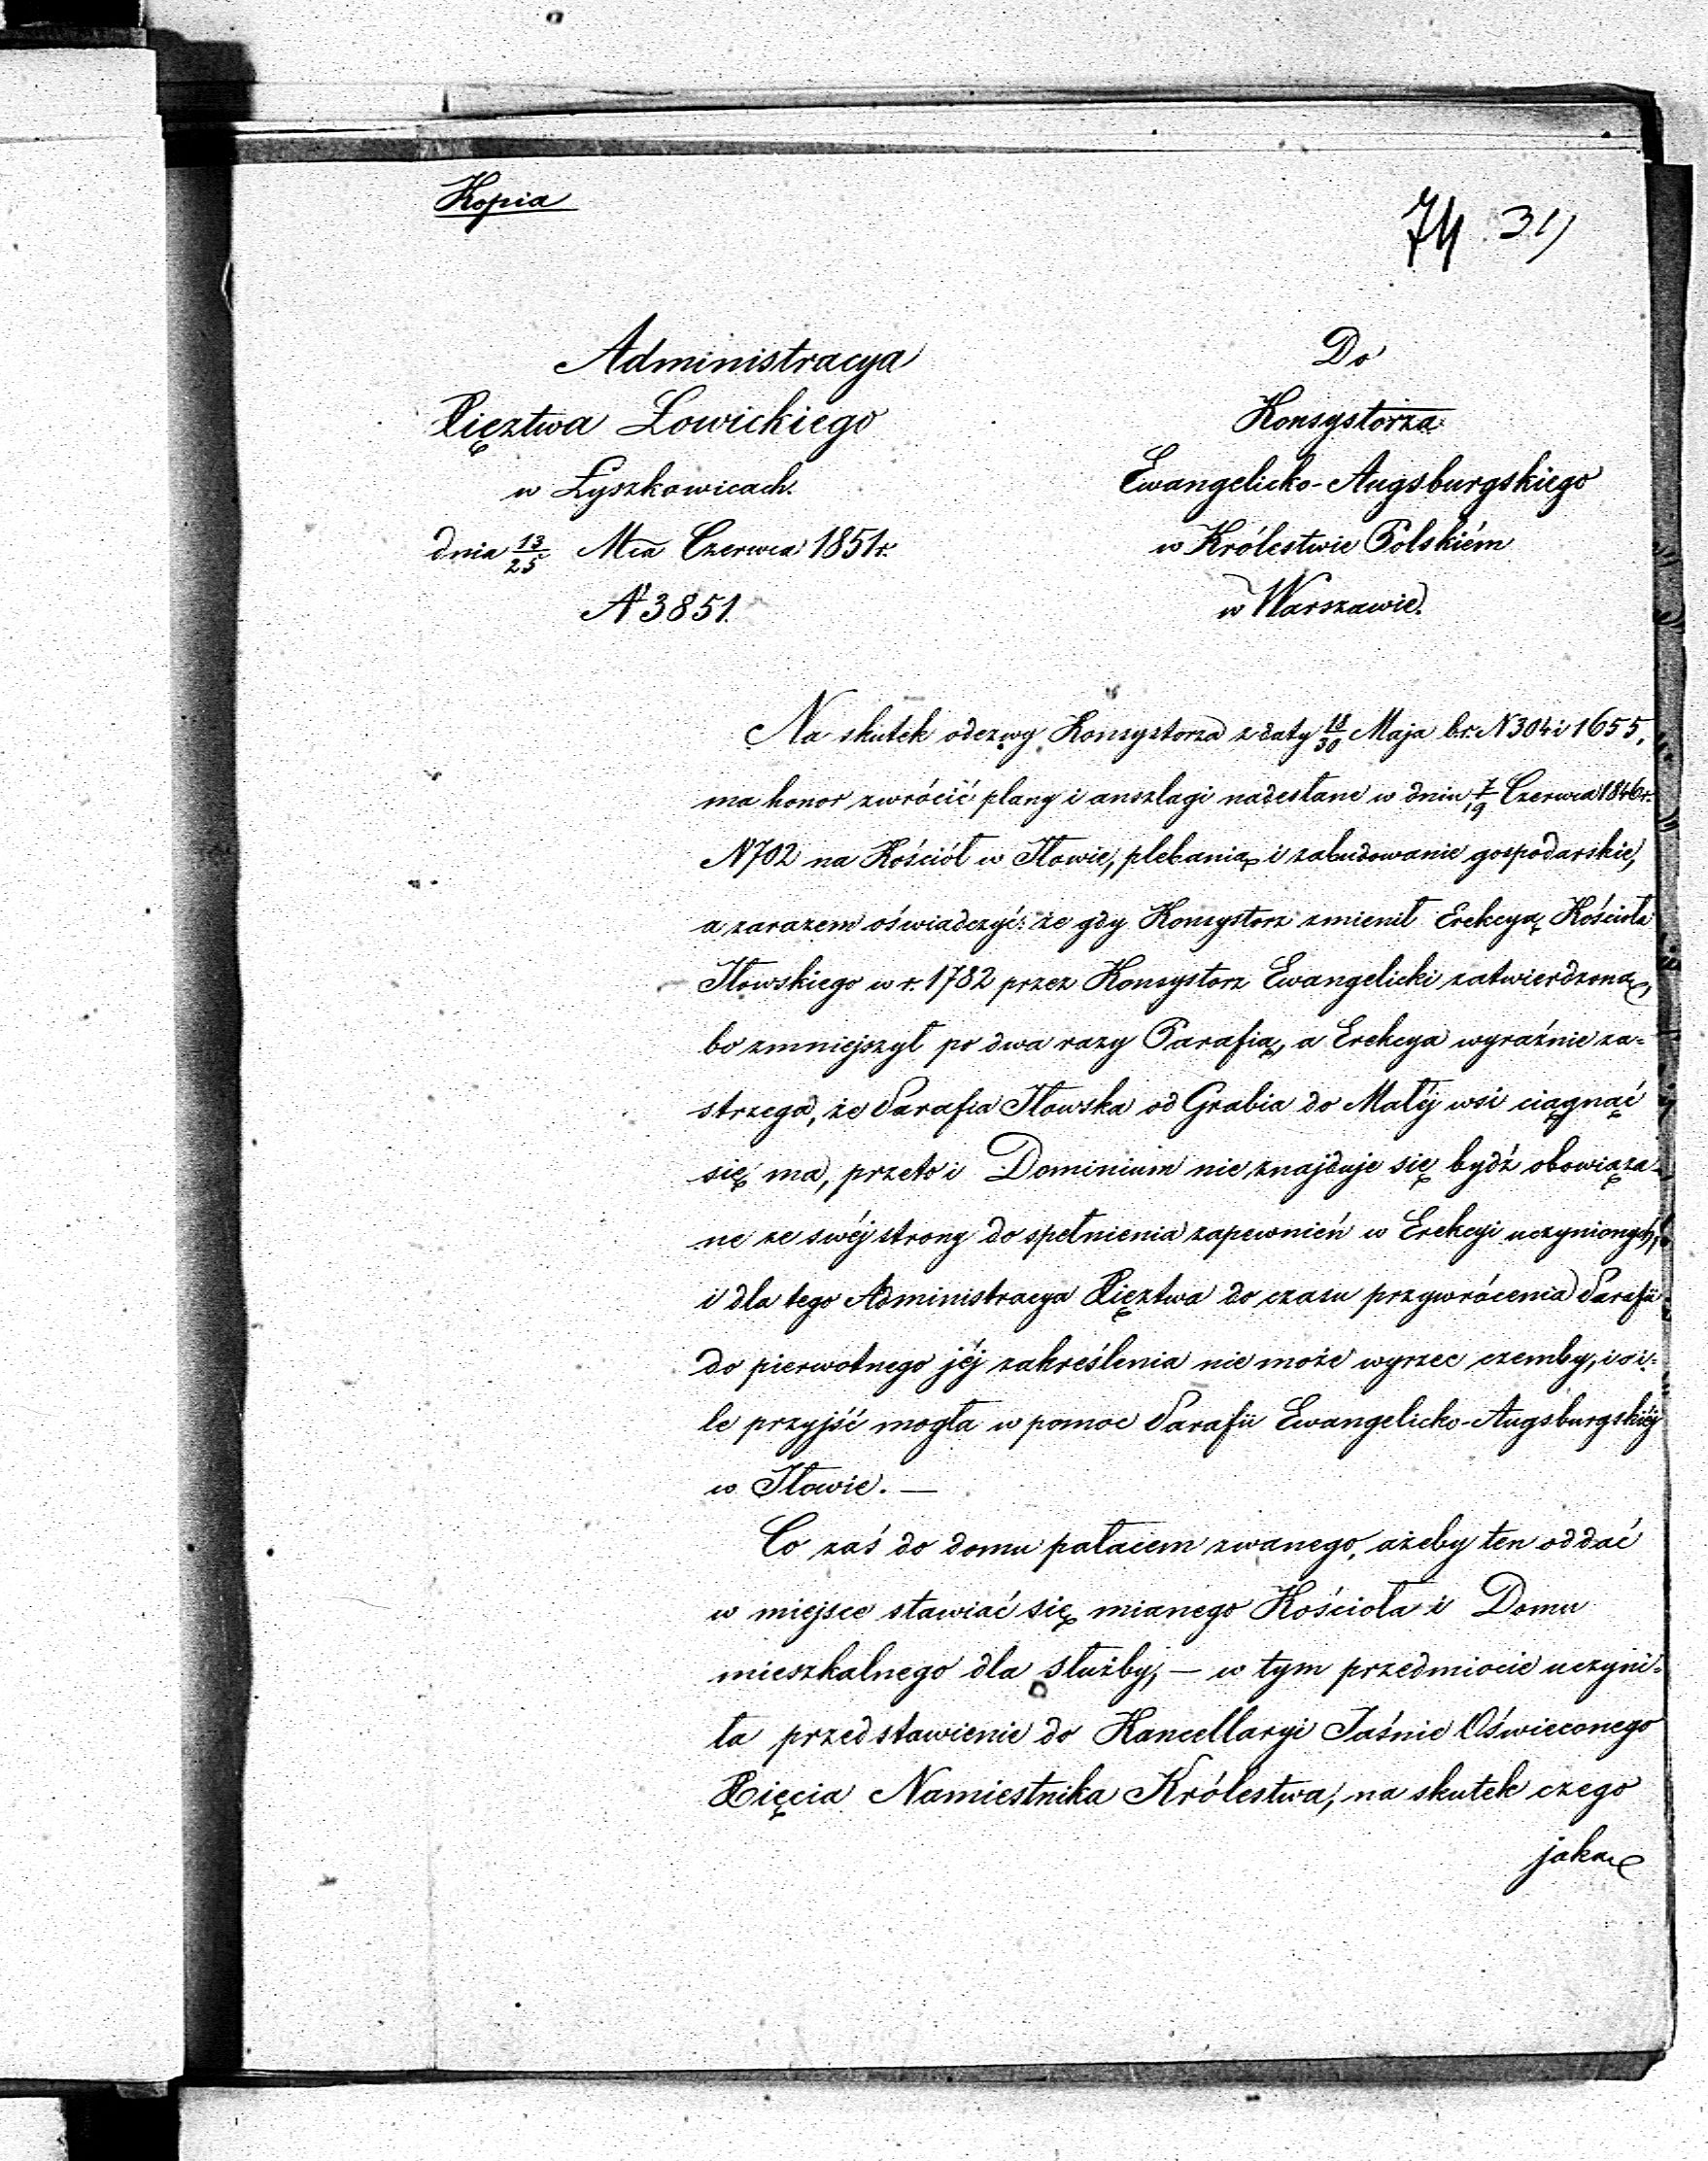 Kopia
74 31)
Administracya
Xięztwa Łowickiego
w Łyszkowicach.
dnia 13/25 Mca Czerwca 1851 r.
N 3851.
Do
Konsystorza
Ewangelicko-Augsburgskiego
w Królestwie Polskiém
w Warszawie.
Na skutek odezwy Konsystorza z daty 18/30 Maja b.r. N 304 i 1655,
ma honor zwrócić plany i anszlagi nadesłane w dniu 7/19 Czerwca 1846 r.
N 702 na Kościół w Iłowie, plebanią i zabudowanie gospodarskie,
a zarazem oświadczyć: że gdy Konsystorz zmienił Erekcyą Kościoła
Iłowskiego w r. 1782 przez Konsystorz Ewangelicki zatwierdzoną,
bo zmniejszył po dwa razy Parafią, a Erekcya wyraźnie za-
strzega, że Parafia Iłowska od Grabia do Małéj wsi ciągnąć
się ma, przeto i Dominium nie znajduje się bydź obowiąza-
ne ze swéj strony do spełnienia zapewnień w Erekcyi uczynionych,
i dla tego Administracya Xięztwa do czasu przywrócenia Parafii
do pierwotnego jéj zakreślenia nie może wyrzec czemby, i o i-
le przyjść mogła w pomoc Parafii Ewangelicko-Augsburgskiéj
w Iłowie. —
Co zaś do domu pałacem zwanego, ażeby ten oddać
w miejsce stawiać się mianego Kościoła i Domu
mieszkalnego dla służby, — w tym przedmiocie uczyni-
ła przedstawienie do Kancellaryi Jaśnie Oświeconego
Xięcia Namiestnika Królestwa, na skutek czego
jaką